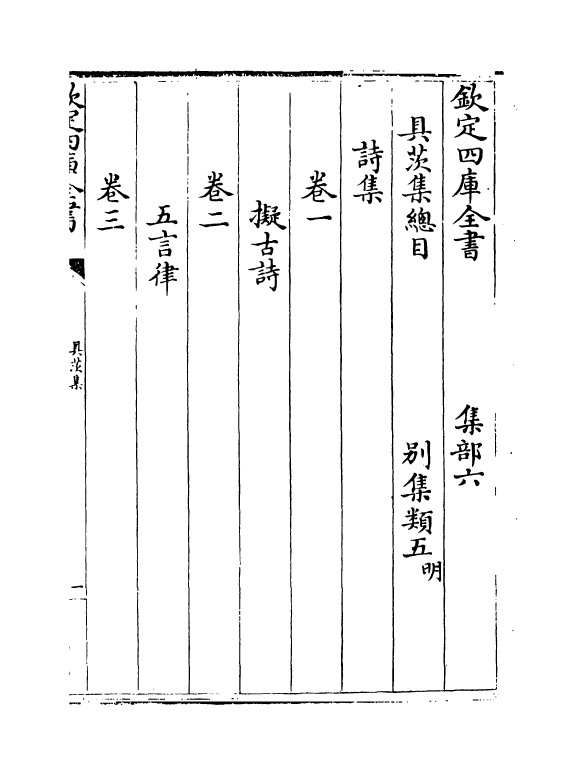 欽定四庫全書　集部六
具茨集總目　別集類五明
詩集
卷一
擬古詩
卷二
五言律
卷三
欽定四庫全書
具茨集
一